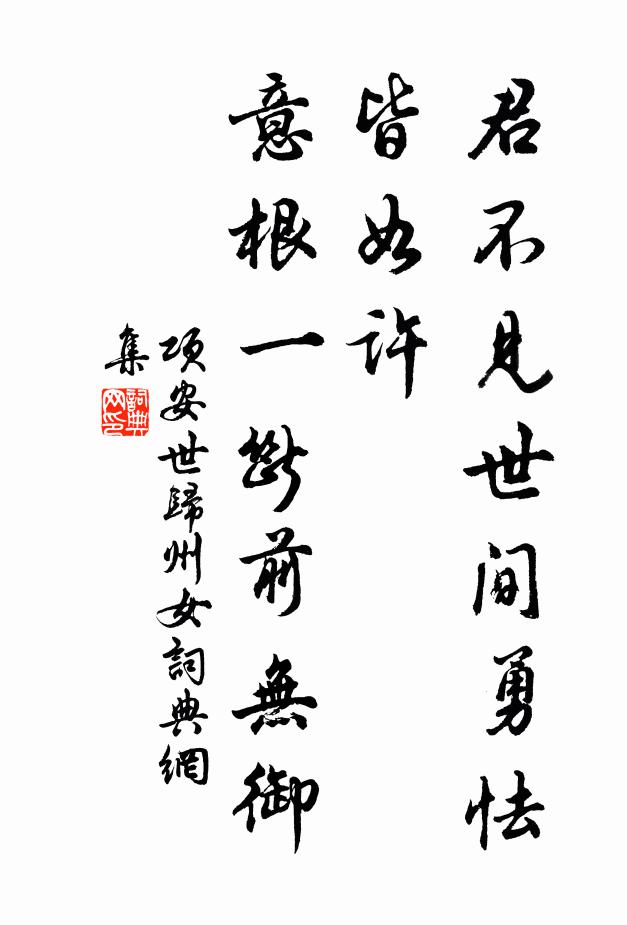 君不見世間勇怯
皆如許
意根一斷前無御
項安世歸州女詞典網
集
詞典網印